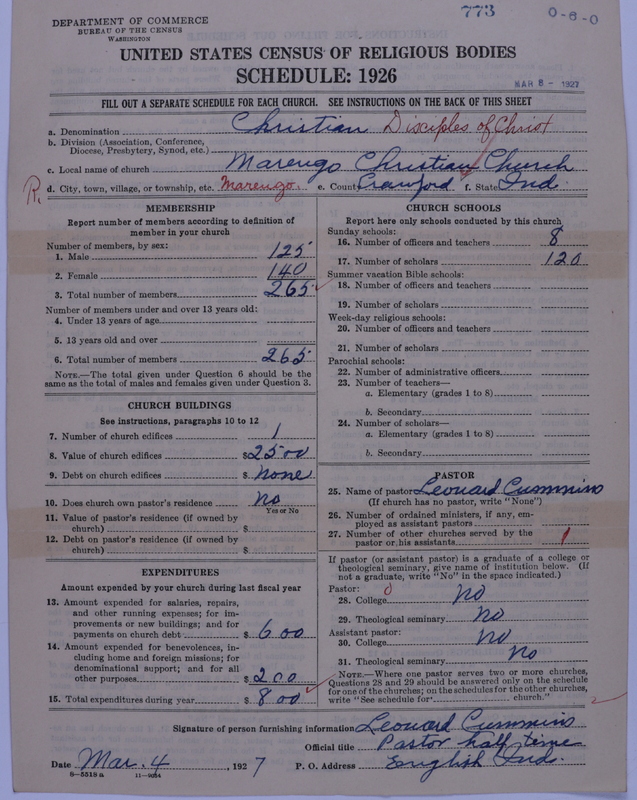 773
0-8-0
DEPARTMENT OF COMMERCE
BUREAU OF THE CENSUS
WASHINGTON
UNITED STATES CENSUS OF RELIGIOUS BODIES
SCHEDULE: 1926
MAR 8 - 1927
FILL OUT A SEPARATE SCHEDULE FOR EACH CHURCH. SEE INSTRUCTIONS ON THE BACK OF THIS SHEET
a. Denomination Christian Disciples of Christ
b. Division (Association, Conference,
Diocese, Presbytery, Synod, etc.)
c. Local name of church Marengo Christian Church
R. d. City, town, village, or township, etc. Marengo. e. County Crawford f. State Ind.
MEMBERSHIP
Report number of members according to definition of
member in your church
Number of members, by sex:
1. Male 125
2. Female 140
3. Total number of members 265
Number of members under and over 13 years old:
4. Under 13 years of age
5. 13 years old and over
6. Total number of members 265
NOTE.—The total given under Question 6 should be the
same as the total of males and females given under Question 3.
CHURCH BUILDINGS
See instructions, paragraphs 10 to 12
7. Number of church edifices 1
8. Value of church edifices $2500
9. Debt on church edifices $ none
10. Does church own pastor's residence no
Yes or No
11. Value of pastor's residence (if owned by
church) $
12. Debt on pastor's residence (if owned by
church) $
EXPENDITURES
Amount expended by your church during last fiscal year
13. Amount expended for salaries, repairs,
and other running expenses; for im-
provements or new buildings; and for
payments on church debt $ 600
14. Amount expended for benevolences, in-
cluding home and foreign missions; for
denominational support; and for all
other purposes $ 200
15. Total expenditures during year $ 800
CHURCH SCHOOLS
Report here only schools conducted by this church
Sunday schools:
16. Number of officers and teachers 8
17. Number of scholars 120
Summer vacation Bible schools:
18. Number of officers and teachers
19. Number of scholars
Week-day religious schools:
20. Number of officers and teachers
21. Number of scholars
Parochial schools:
22. Number of administrative officers
23. Number of teachers—
a. Elementary (grades 1 to 8)
b. Secondary
24. Number of scholars—
a. Elementary (grades 1 to 8)
b. Secondary
PASTOR
25. Name of pastor Leonard Cummins
(If church has no pastor, write "None")
26. Number of ordained ministers, if any, em-
ployed as assistant pastors
27. Number of other churches served by the
pastor or his assistants 1
If pastor (or assistant pastor) is a graduate of a college or
theological seminary, give name of institution below. (If
not a graduate, write "No" in the space indicated.)
Pastor: 0
28. College no
29. Theological seminary No
Assistant pastor:
30. College No
31. Theological seminary No
NOTE.—Where one pastor serves two or more churches,
Questions 28 and 29 should be answered only on the schedule
for one of the churches; on the schedules for the other churches,
write "See schedule for church."
Signature of person furnishing information Leonard Cummins
Official title Pastor half time
Date Mar. 4, 1927 P. O. Address English Ind.
8—5518 a 11—9064